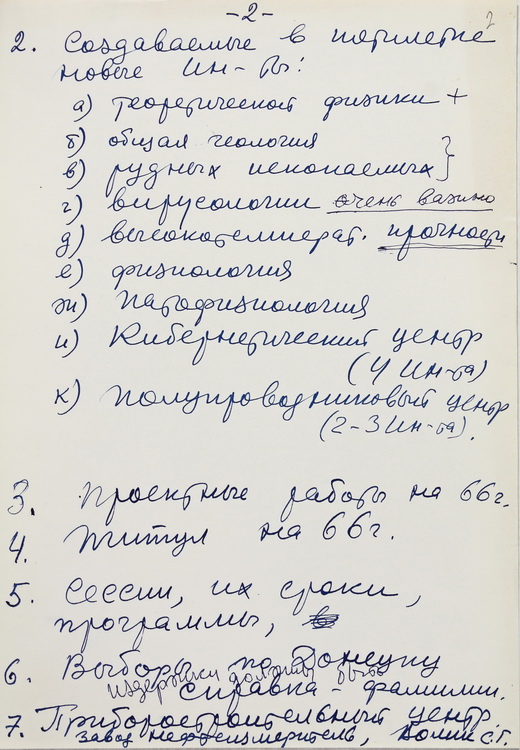 -2-
2
2. Создаваемые в пятилетке
новые ин-ты:
а) теоретической физики +
б) общая геология
в) рудных ископаемых }
г) вирусологии очень важно
д) высокотемперат. прочности
е) физиология
ж) патофизиология
и) Кибернетический центр
(4 ин-та)
к) полупроводниковый центр
(2-3 ин-та).
3. Проектные работы на 66г.
4. Титул на 66г.
5. Сессии, их сроки,
программы,
6. Выборы по Донецку
издержки должны быть
справка - фамилии.
7. Приборостроительный центр,
завод